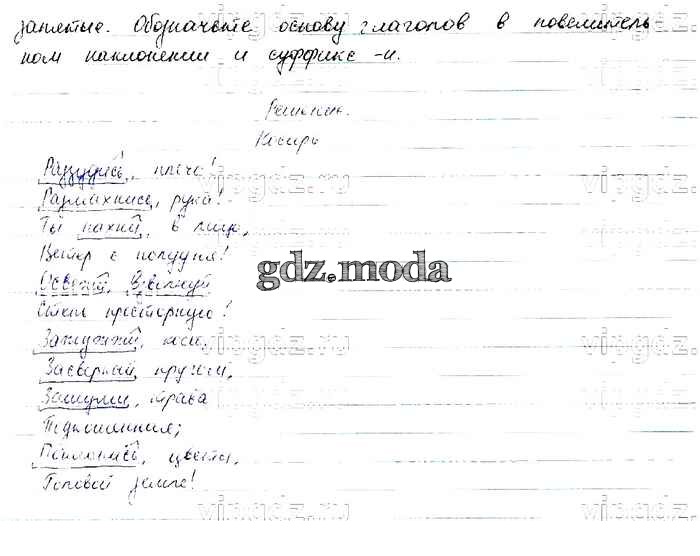 запятые. Обозначьте основу глаголов в повелитель-
ном наклонении и суффикс -и.
Решение.
Косарь
Раззудись, плечо!
Размахнись, рука!
Ты пахни, в лицо,
Ветер с полудня!
Освежи, взволнуй
Степь просторную!
Зажужжи, коса,
Засверкай кругом,
Зашуми, трава
Подкошенная;
Поклонись, цветы,
Головой земле!
gdz.moda
vipgdz.ru
vipgdz.ru
vipgdz.ru
vipgdz.ru
vipgdz.ru
vipgdz.ru